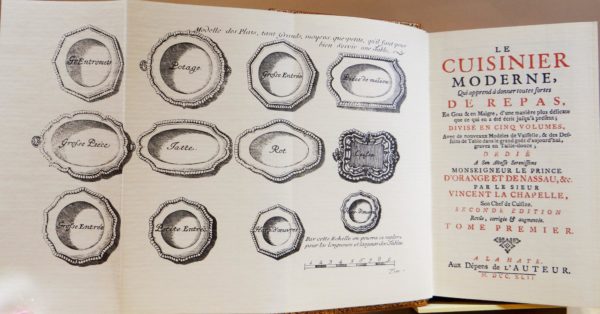 Modelle des Plats, tant Grands, moyens que petits, qu'il faut pour
bien servir une Table.
Potage.
Grosse Entrée
Grosse Piéce
Jatte.
Rot.
Grosse Entrée
Petite Entrée
Hors d'œuvres
Par cette Echelle on pourra se regler
pour les longueurs et largeurs des Tables
LE
CUISINIER
MODERNE,
Qui apprend à donner toutes sortes
DE REPAS,
En Gras & en Maigre, d'une manière plus délicate
que ce qui en a été écrit jusqu'à présent;
DIVISÉ EN CINQ VOLUMES,
Avec de nouveaux Modéles de Vaisselle, & des Des-
seins de Table dans le grand goût d'aujourd'hui,
gravez en Taille-douce;
DEDIÉ
A Son Altesse Serenissime
MONSEIGNEUR LE PRINCE
D'ORANGE ET DE NASSAU, &c.
PAR LE SIEUR
VINCENT LA CHAPELLE,
Son Chef de Cuisine.
SECONDE EDITION
Revûe, corrigée & augmentée.
TOME PREMIER.
A LA HAYE,
Aux Dépens de L'AUTEUR.
M. DCC. XLII